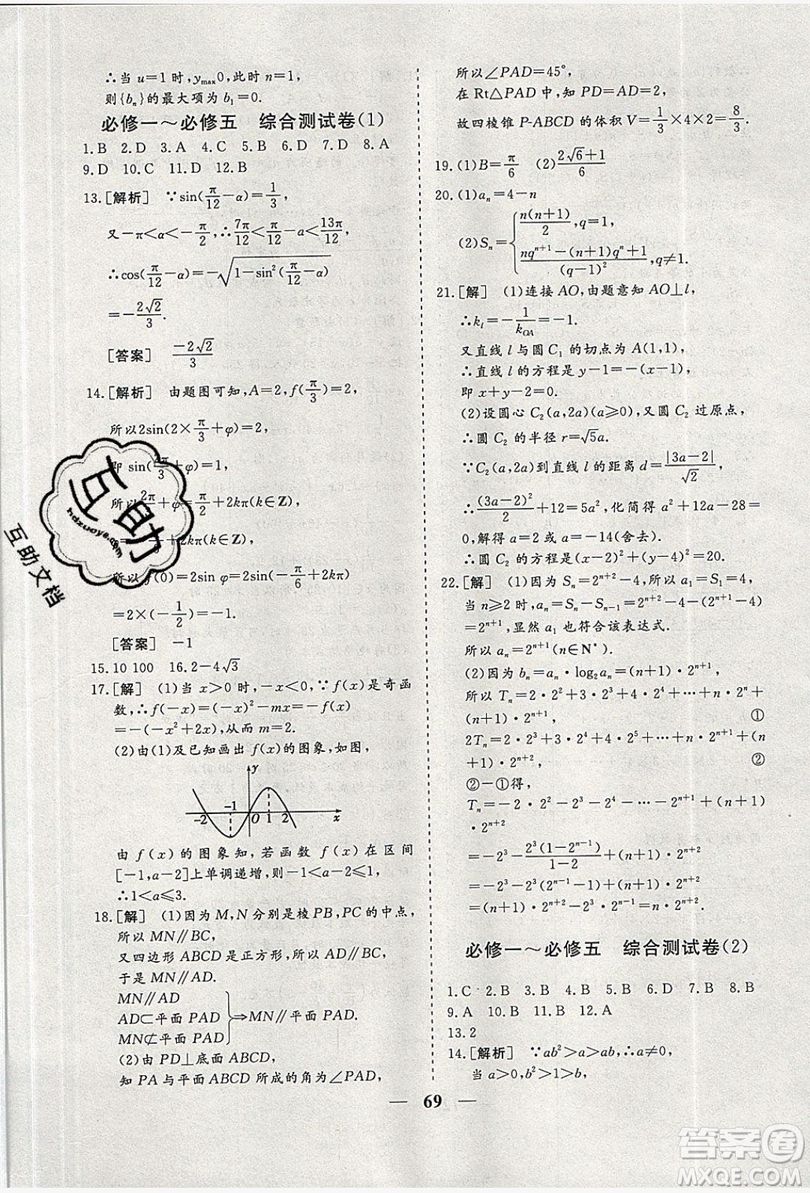 ∴当 u=1 时, yₘₐₓ0, 此时 n=1,
则{bₙ}的最大项为 b₁=0.
必修一~必修五 综合测试卷(1)
1.B 2.D 3.A 4.C 5.B 6.D 7.D 8.A
9.D 10.D 11.C 12.B
13.[解析] ∵sin(π/12−α)=1/3,
又−π<α<−π/2, ∴7π/12<π/12−α<13π/12,
∴cos(π/12−α)=−√(1−sin²(π/12−α))
=−2√2/3.
[答案] −2√2/3
14.[解析] 由题图可知, A=2, f(π/3)=2,
所以2sin(2×π/3+φ)=2,
即 sin(2π/3+φ)=1,
所以2π/3+φ=π/2+2kπ(k∈Z),
φ=−π/6+2kπ(k∈Z),
所以 f(0)=2sin φ=2sin(−π/6+2kπ)
=2×(−1/2)=−1.
[答案] −1
15.10 100 16.2−4√3
17.[解] (1)当 x>0 时, −x<0, ∵f(x)是奇函
数, ∴f(−x)=(−x)²−mx=−f(x)
=−(−x²+2x), 从而 m=2.
(2)由(1)及已知画出 f(x)的图象, 如图.
y
−2 −1 O 1 2 x
由 f(x)的图象知, 若函数 f(x)在区间
[−1,a−2]上单调递增, 则−1<a−2≤1,
∴1<a≤3.
18.[解] (1)因为 M,N 分别是棱 PB,PC 的中点,
所以 MN∥BC,
又四边形 ABCD 是正方形, 所以 AD∥BC,
于是 MN∥AD.
MN∥AD
AD⊂平面 PAD ⇒MN∥平面 PAD.
MN⊄平面 PAD
(2)由 PD⊥底面 ABCD,
知 PA 与平面 ABCD 所成的角为∠PAD,
所以∠PAD=45°,
在 Rt△PAD 中, PD=AD=2,
故四棱锥 P-ABCD 的体积 V=1/3×4×2=8/3.
19.(1)B=π/6 (2)(2√6+1)/6
20.(1)aₙ=4−n
(2)Sₙ={n(n+1)/2, q=1,
(nqⁿ⁺¹−(n+1)qⁿ+1)/(q−1)², q≠1
21.[解] (1)连接 AO, 由题意知 AO⊥l,
∴kₗ=−1/k_OA=−1.
又直线 l 与圆 C₁ 的切点为 A(1,1),
∴直线 l 的方程是 y−1=−(x−1),
即 x+y−2=0.
(2)设圆心 C₂(a,2a)(a>0), 又圆 C₂ 过原点,
∴圆 C₂ 的半径 r=√5a.
∵C₂(a,2a)到直线 l 的距离 d=|3a−2|/√2,
∴(3a−2)²/2+12=5a², 化简得 a²+12a−28=
0, 解得 a=2 或 a=−14(舍去).
∴圆 C₂ 的方程是(x−2)²+(y−4)²=20.
22.[解] (1)因为 Sₙ=2ⁿ⁺²−4,
当 n≥2 时, aₙ=Sₙ−Sₙ₋₁=2ⁿ⁺²−4−(2ⁿ⁺¹−4)
=2ⁿ⁺¹, 显然 a₁ 也符合该表达式.
所以 aₙ=2ⁿ⁺¹(n∈N*).
(2)因为 bₙ=aₙ·log₂aₙ=(n+1)·2ⁿ⁺¹,
所以 Tₙ=2·2²+3·2³+4·2⁴+…+n·2ⁿ+
(n+1)·2ⁿ⁺¹, ①
2Tₙ=2·2³+3·2⁴+4·2⁵+…+n·2ⁿ⁺¹+(n
+1)·2ⁿ⁺². ②
②−①得,
Tₙ=−2·2²−2³−2⁴−2⁵−…−2ⁿ⁺¹+(n+1)
·2ⁿ⁺²
=−2³−2³(1−2ⁿ⁻¹)/(1−2)+(n+1)·2ⁿ⁺²
=−2³−2³(2ⁿ⁻¹−1)+(n+1)·2ⁿ⁺²
=(n+1)·2ⁿ⁺²−2³·2ⁿ⁻¹
=(n+1)·2ⁿ⁺²−2ⁿ⁺²=n·2ⁿ⁺².
必修一~必修五 综合测试卷(2)
1.C 2.B 3.B 4.D 5.B 6.D 7.B 8.B
9.A 10.B 11.B 12.A
13.2
14.[解析] ∵ab²>a>ab, ∴a≠0,
当 a>0 时, b²>1>b,
69
互助
hdzuoye.com
互助文档
答案圈
MXQE.COM